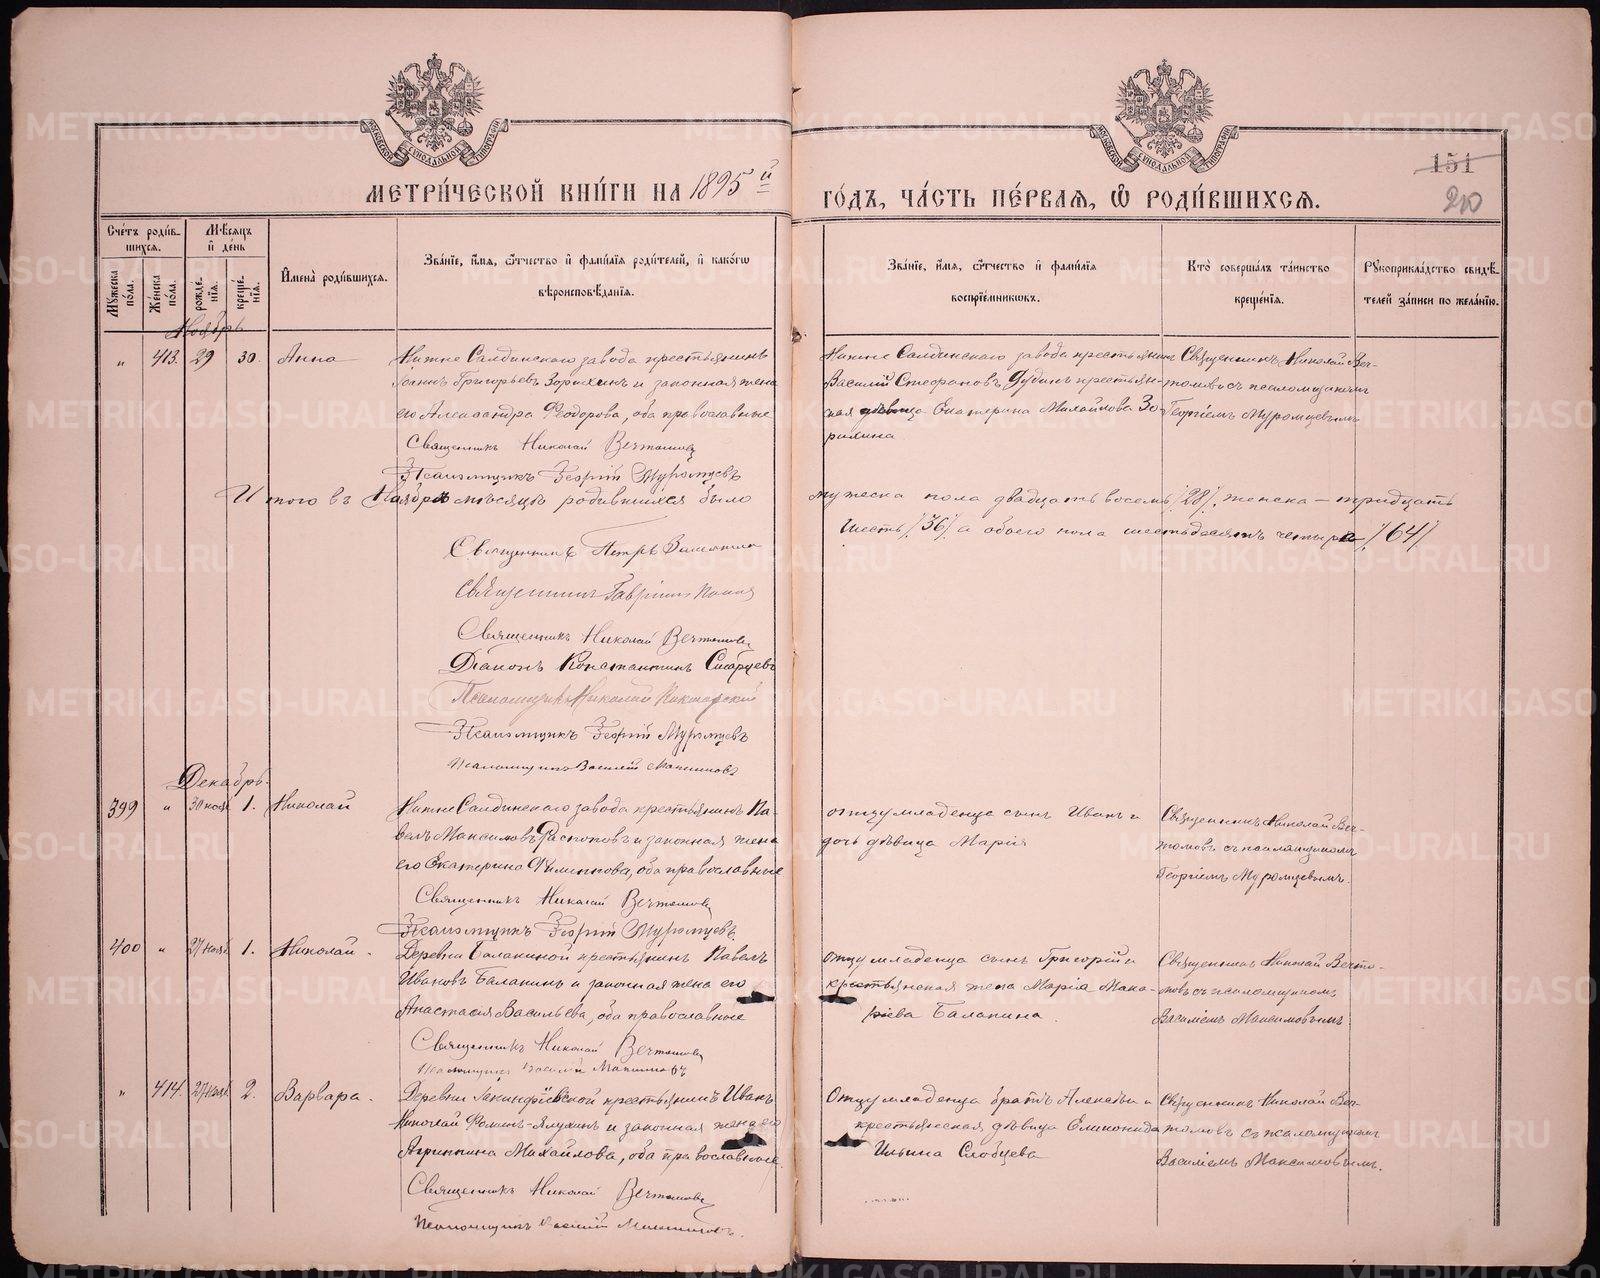 МЕТРИ́ЧЕСКОЙ КНИ́ГИ НА 1895 й
ГО́ДЪ, ЧА́СТЬ ПЕ́РВАЯ, Ѽ РОДИ́ВШИХСЯ.
151
210
Сче́тъ роди́вшихся.
Му́жеска по́ла.
Же́нска по́ла.
Мѣ́сяцъ и де́нь
рожде́нїя.
креще́нїя.
Имена̀ роди́вшихся.
Зва́нїе, и́мя, ѻ҆́тчество и фами́лїя роди́телей, и како́гѡ
вѣроисповѣ́данїя.
Зва́нїе, и́мя, ѻ҆́тчество и фами́лїя
воспрїе́мникѡвъ.
Кто̀ соверша́лъ та́инство
креще́нїя.
Рꙋкоприкла́дство свидѣ́телей за́писи по жела́нїю.
Ноябрь
„ 413. 29 30. Анна
Нижне Салдинскаго завода крестьянинъ
Іоаннъ Григорьевъ Зорихинъ и законная жена
его Александра Ѳеодорова, оба православные
Священникъ Николай Вечтомовъ
Псаломщикъ Георгій Муромцевъ
Нижне Салдинскаго завода крестьянин
Василій Стефановъ Дудинъ крестьян-
ская дѣвица Екатерина Михайлова Зо
рихина
Священникъ Николай Веч-
томовъ съ псаломщикомъ
Георгіемъ Муромцевымъ
Итого въ Ноябрѣ мѣсяцѣ родившихся было
мужеска пола двадцать восемь /28/, женска – тридцать
шесть /36/ а обоего пола шестьдесятъ четыре /64/
Священникъ Петръ
Священникъ Гавріилъ Поповъ
Священникъ Николай Вечтомовъ
Діаконъ Константинъ Старцевъ
Псаломщикъ Николай
Псаломщикъ Георгій Муромцевъ
Псаломщикъ Василій Максимовъ
Декабрь
399 „ 30 нояб 1. Николай
Нижне Салдинскаго завода крестьянинъ Па-
велъ Максимовъ Распоповъ и законная жена
его Екатерина Филиппова, оба православные
Священникъ Николай Вечтомовъ
Псаломщикъ Георгій Муромцевъ
отцу младенца сынъ Иванъ и
дочь дѣвица Марія
Священникъ Николай Веч-
томовъ съ псаломщикомъ
Георгіемъ Муромцевымъ.
400 „ 27 нояб. 1. Николай.
Деревни Балакиной крестьянинъ Павелъ
Ивановъ Балакинъ и законная жена его
Анастасія Васильева, оба православные
Священникъ Николай Вечтомовъ
Псаломщикъ Василій Максимовъ
отцу младенца сынъ Григорій и
крестьянская жена Марія Мака-
рiева Балакина.
Священникъ Николай Вечто-
мовъ съ псаломщикомъ
Василіемъ Максимовымъ
„ 414. 27 нояб. 2. Варвара.
Деревни Акинфіевской крестьянинъ Иванъ
Николай Фоминъ-Ялунинъ и законная жена его
Агриппина Михайлова, оба православные.
Священникъ Николай Вечтомовъ
Псаломщикъ Василій Максимовъ.
Отцу младенца братъ Алексѣй и
крестьянская дѣвица Еликонида
Ильина Слобцева
Священникъ Николай Веч-
томовъ съ псаломщикомъ
Василіемъ Максимовымъ.
METRIKI.GASO-URAL.RU